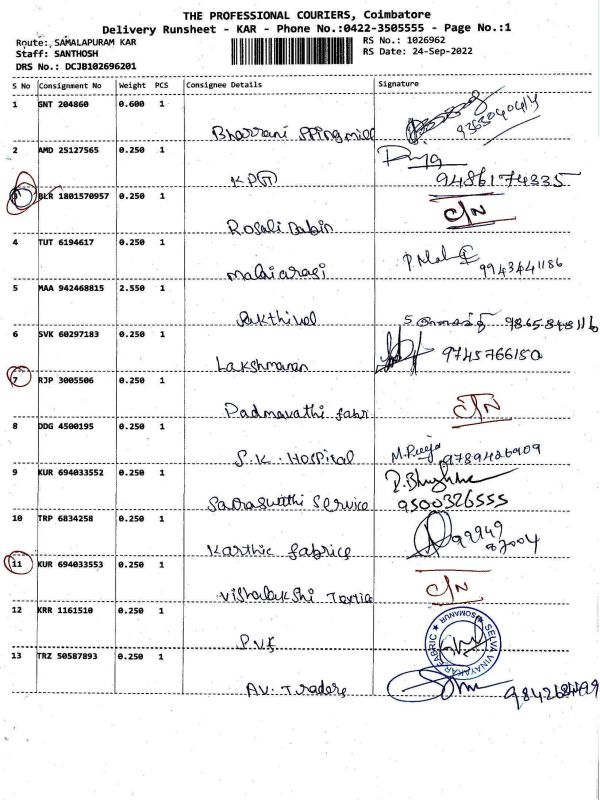 THE PROFESSIONAL COURIERS, Coimbatore
Delivery Runsheet - KAR - Phone No.:0422-3505555 - Page No.:1
Route: SAMALAPURAM KAR
RS No.: 1026962
Staff: SANTHOSH
RS Date: 24-Sep-2022
DRS No.: DCJB102696201
S No Consignment No Weight PCS Consignee Details Signature
1 GNT 204860 0.600 1
Bharrani Spingmill
2 AMD 25127565 0.250 1
KPG 9486174335
3 BLR 1801570957 0.250 1
Rosali Babin C/N
4 TUT 6194617 0.250 1
Malaiarasi 9943441186
5 MAA 942468815 2.550 1
Sakthivel
6 SVK 60297183 0.250 1
Lakshmanan 9745766150
7 RJP 3005506 0.250 1
Padmavathi fabr C/N
8 DDG 4500195 0.250 1
S.K. Hospital M. Pooja 9789426909
9 KUR 694033552 0.250 1
Saraswathi Service 9500326555
10 TRP 6834258 0.250 1
Karthic fabrics 99949 87004
11 KUR 694033553 0.250 1
Vishalakshi Textile C/N
12 KRR 1161510 0.250 1
P.V.S
SELVA VINAYAKAR FABRIC ★ SOMANUR ★
13 TRZ 50587893 0.250 1
AV. Traders